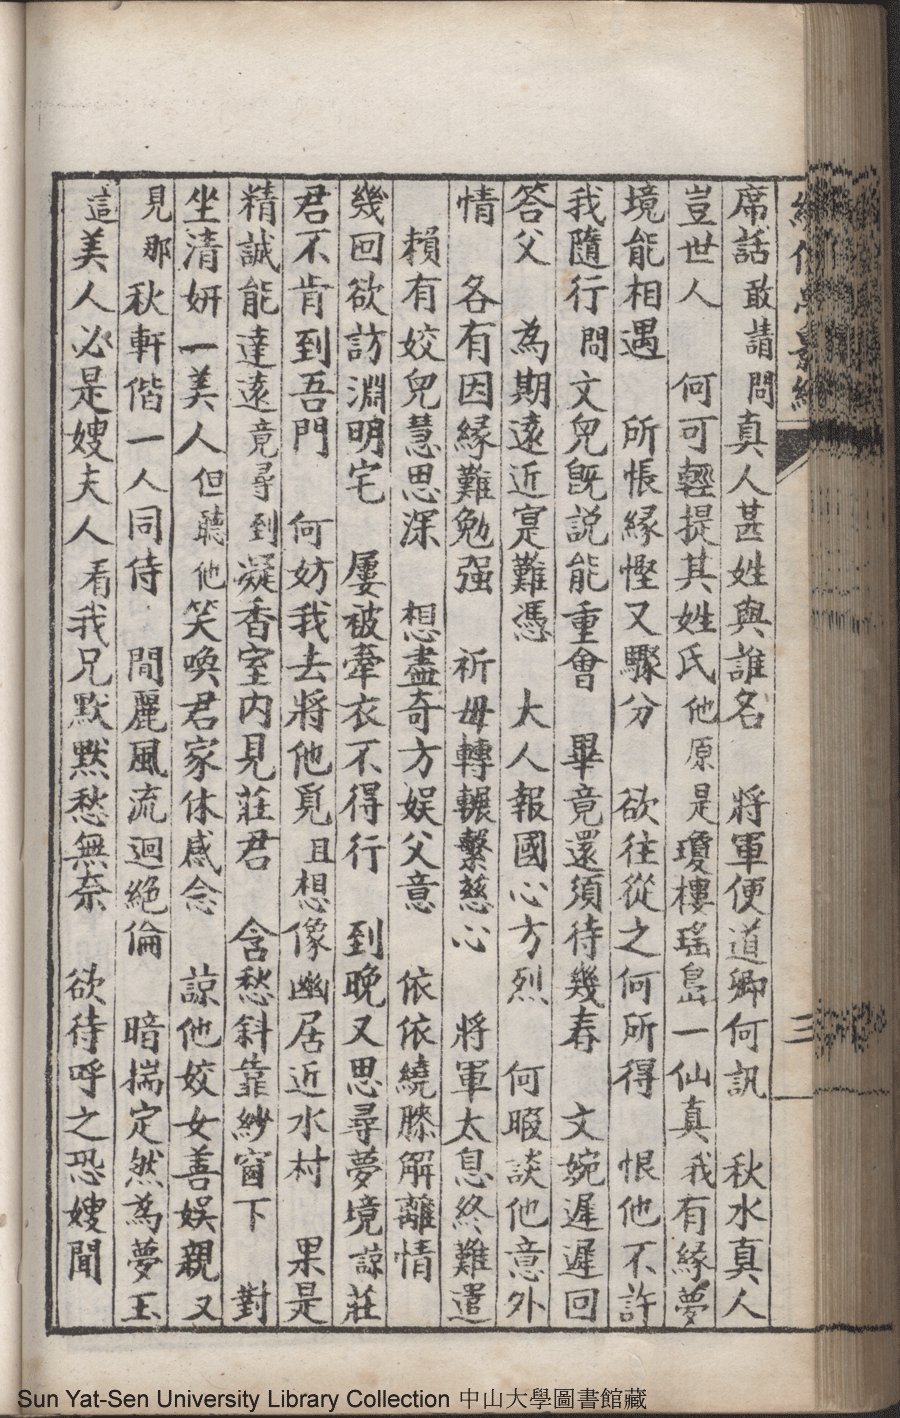 席話敢請問真人甚姓與誰名 將軍便道卿何訊 秋水真人
豈世人 何可輕提其姓氏他原是瓊樓瑤島一仙真我有緣夢
境能相遇 所悵緣慳又驟分 欲往從之何所得 恨他不許
我隨行問文兒既説能重會 畢竟還須待幾春 文婉遲遲回
答父 為期遠近寔難憑 大人報國心方烈 何暇談他意外
情 各有因緣難勉强 祈毋轉輾繫慈心 將軍太息終難遣
賴有姣兒慧思深 想盡奇方娱父意 依依繞膝解離情
幾回欲訪淵明宅 屢被牽衣不得行 到晚又思尋夢境諒莊
君不肯到吾門 何妨我去將他覓且想像幽居近水村 果是
精誠能達遠竟尋到凝香室内見莊君 含愁斜靠紗窗下 對
坐清妍一美人但聽他笑喚君家休慼念 諒他姣女善娱親又
見那秋軒偕一人同侍 閒麗風流迥絕倫 暗揣定然為夢玉
這美人必是嫂夫人看我兄默默愁無奈 欲待呼之恐嫂聞
三
Sun Yat-Sen University Library Collection 中山大學圖書館藏